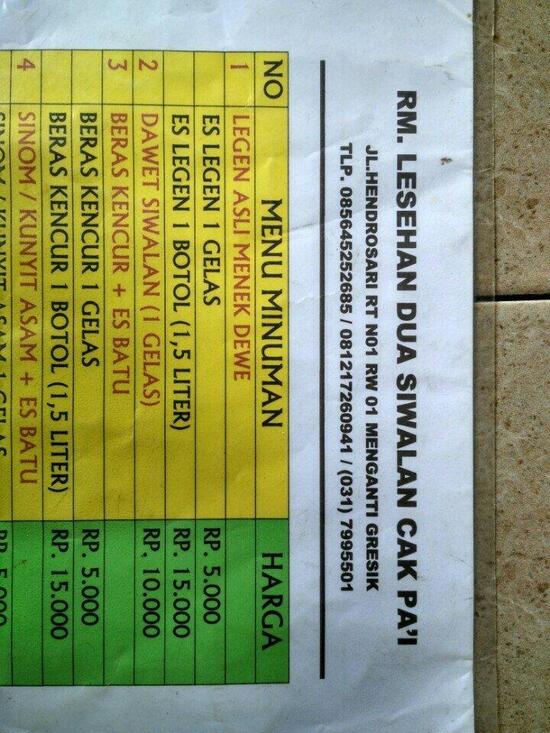 RM. LESEHAN DUA SIWALAN CAK PA'I
JL.HENDROSARI RT N01 RW 01 MENGANTI GRESIK
TLP. 085645252685 / 081217260941 / (031) 7995501
NO MENU MINUMAN HARGA
1 LEGEN ASLI MENEK DEWE
ES LEGEN 1 GELAS RP. 5.000
ES LEGEN 1 BOTOL (1,5 LITER) RP. 15.000
2 DAWET SIWALAN (1 GELAS) RP. 10.000
3 BERAS KENCUR + ES BATU
BERAS KENCUR 1 GELAS RP. 5.000
BERAS KENCUR 1 BOTOL (1,5 LITER) RP. 15.000
4 SINOM / KUNYIT ASAM + ES BATU
SINOM / KUNYIT ASAM 1 GELAS RP. 5.000